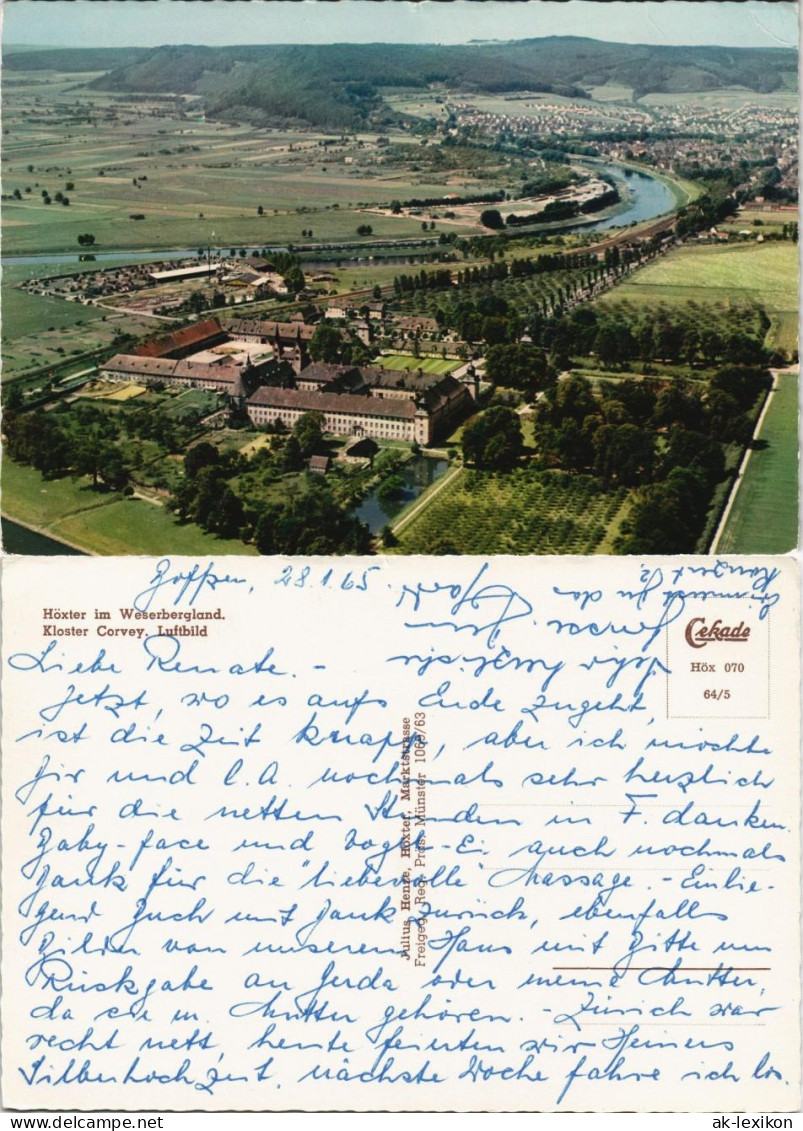 28.1.65.
Höxter im Weserbergland.
Kloster Corvey. Luftbild
Cekade
Höx 070
64/5
Liebe Renate. -
Jetzt, wo es aufs Ende zugeht,
ist die Zeit knapp, aber ich möchte
Dir und nochmals sehr herzlich
für die netten Stunden in F. danken.
Baby-face und Vogel-Ei auch nochmals
Dank für die "liebevolle" Massage. - Einlie-
gend Buch mit Dank zurück, ebenfalls
Bilder von unserem Haus mit Bitte um
Rückgabe an Gerda oder meine Mutter,
da sie m. Mutter gehören. - Zürich war
recht nett, heute feierten wir Heiners
Silberhochzeit, nächste Woche fahre ich los.
Julius Henze, Höxter, Marktstrasse
Freigeg. Reg. Präs. Münster 1065/63
ak-lexikon